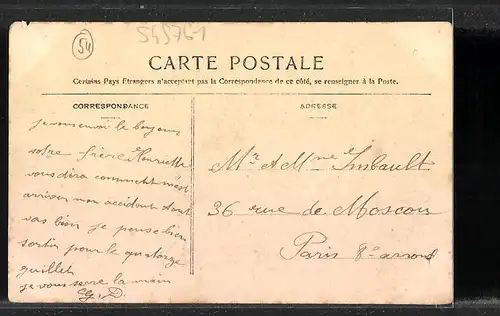 54
545761
CARTE POSTALE
Certains Pays Étrangers n'acceptant pas la Correspondance de ce côté, se renseigner à la Poste.
CORRESPONDANCE
je vous envoi le bonjour
votre frère Henriette
vous dira comment m'est
arriver mon accident tout
vas bien je pense bien
sortir pour le quatorze
juillet
je vous serre la main
G. D.
ADRESSE
Mr et Mme Imbault
36 rue de Moscou
Paris 8e arrond